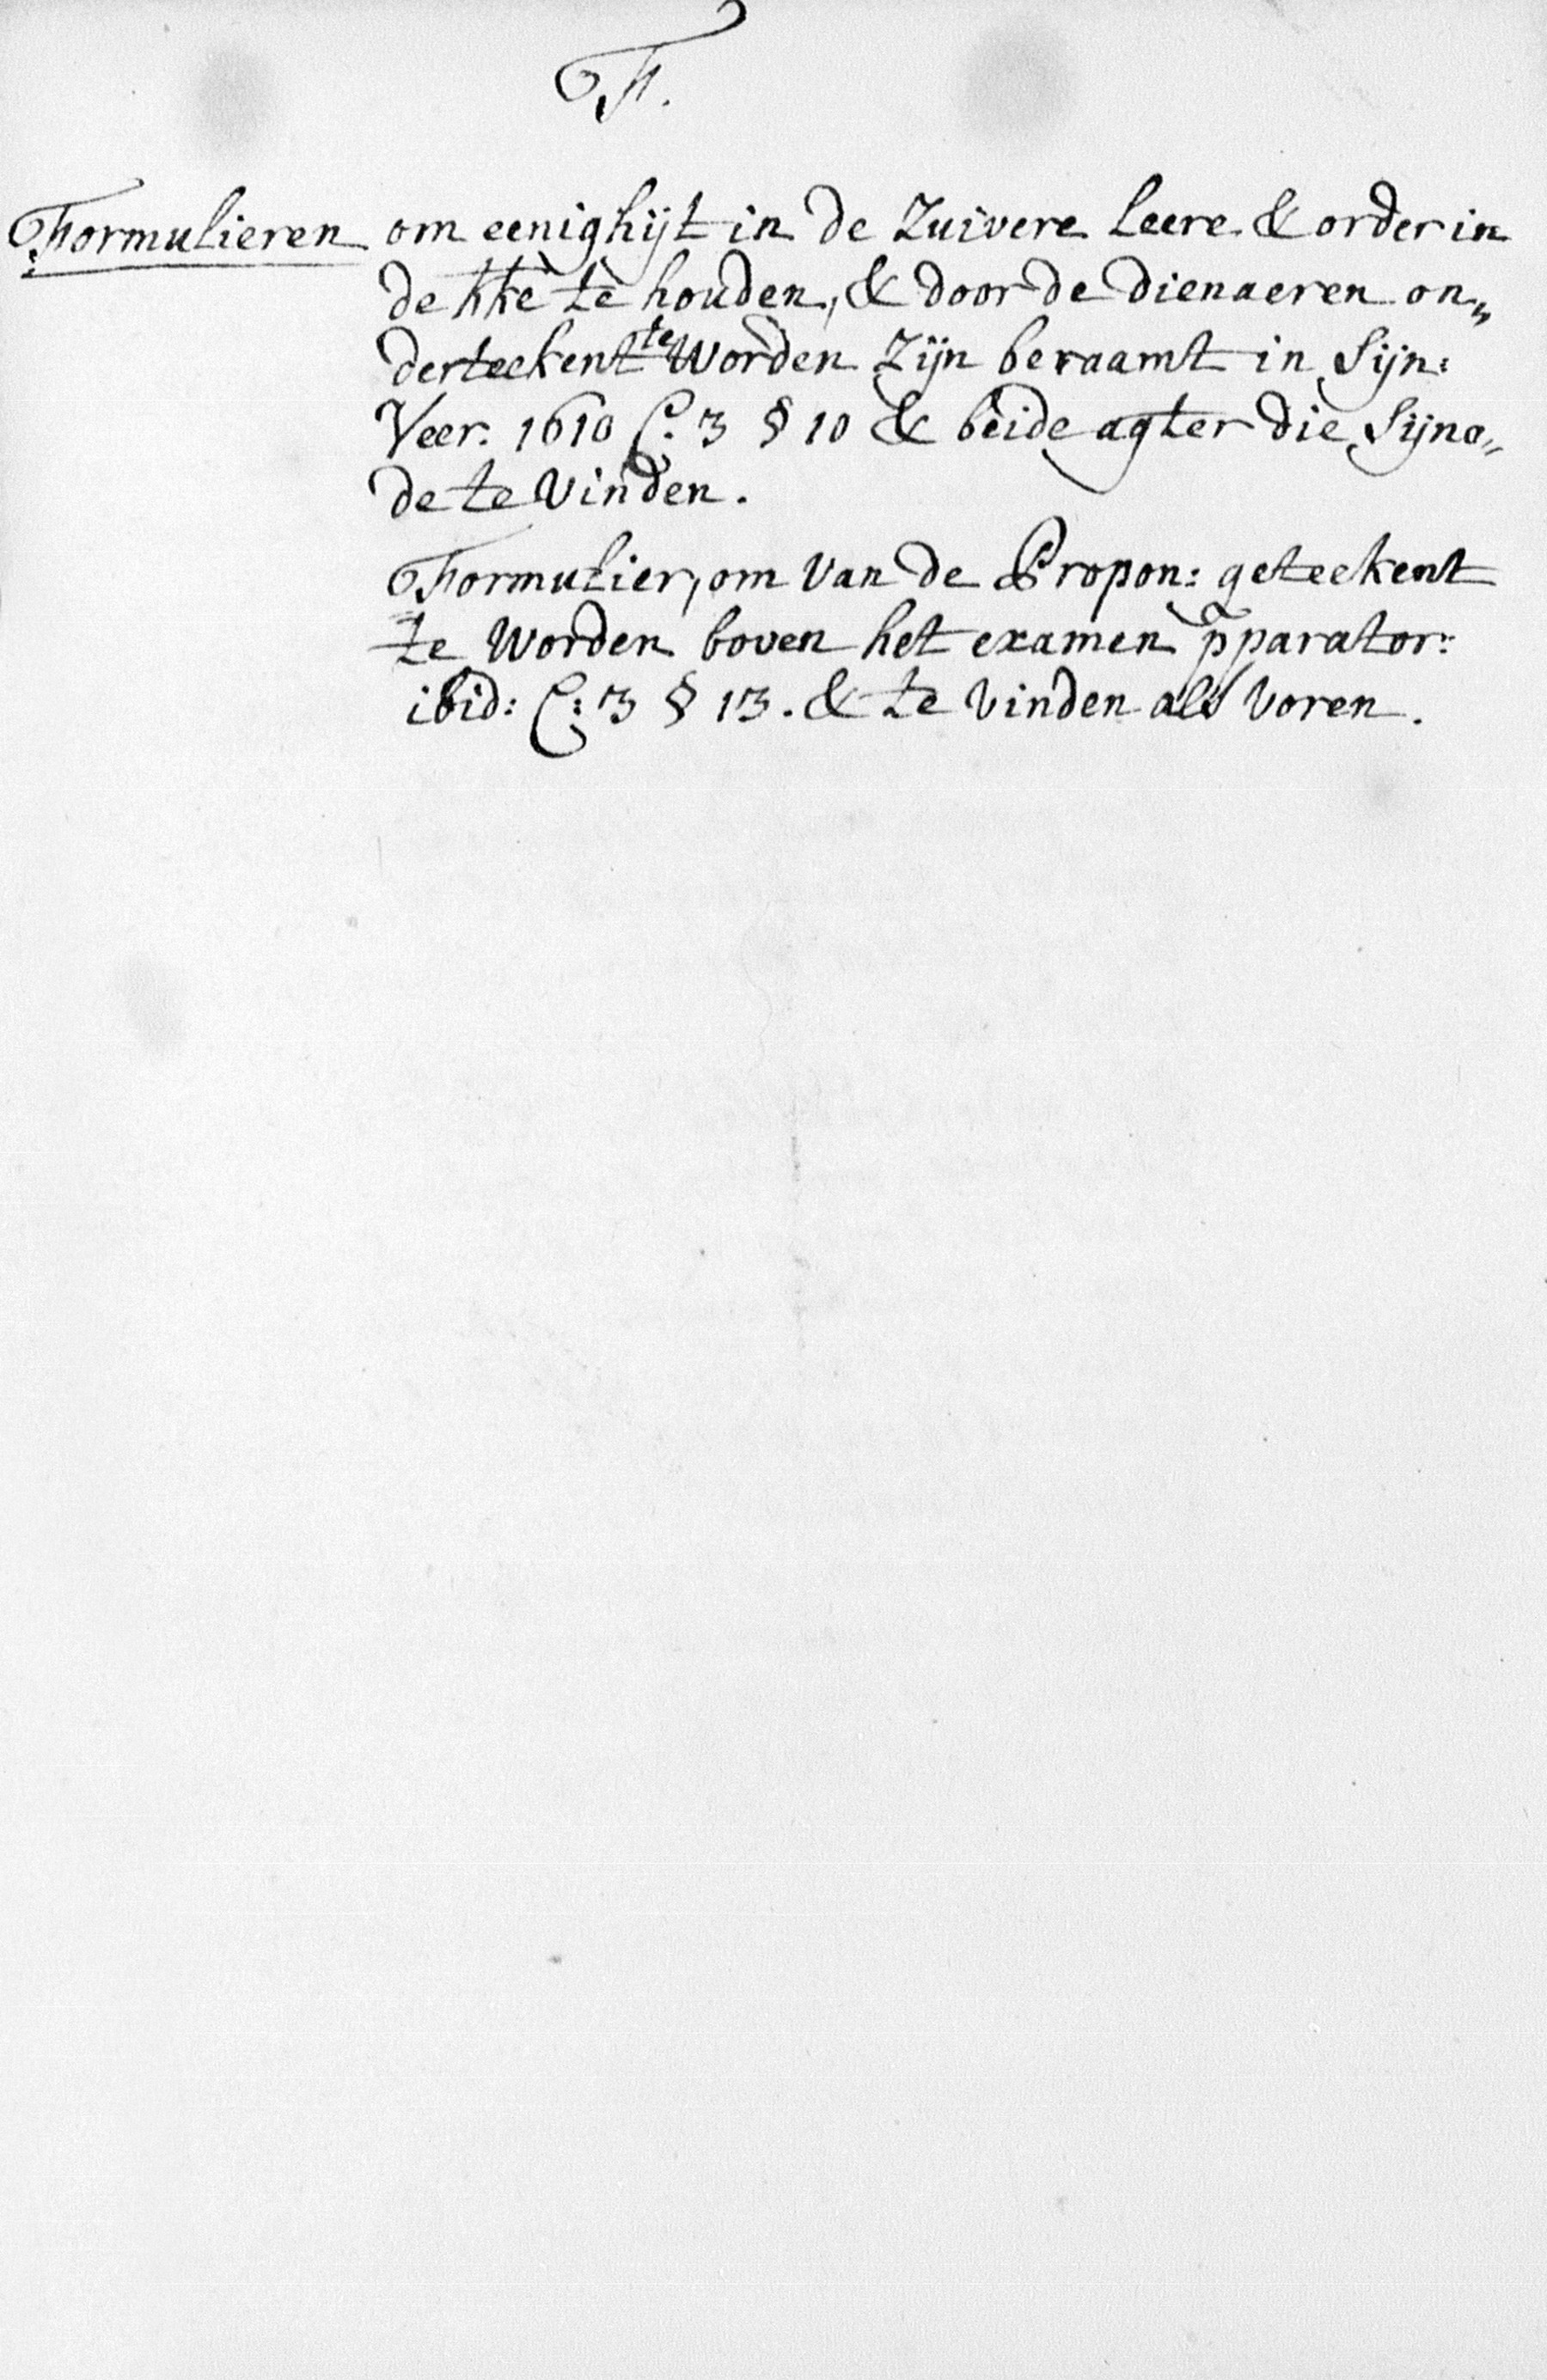 F.
Formulieren om eenighijt in de Zuivere leere & order in
de kke te houden, & door de dienaeren on„
derteekent te worden Zijn beraamt in Sijn:
Veer. 1610 C. 3 § 10 & beide agter die Sijno„
de te vinden.
Formulier, om van de Propon: geteekent
te worden boven het examen p̄parator:
ibid: C: 3 § 13. & te vinden als voren.